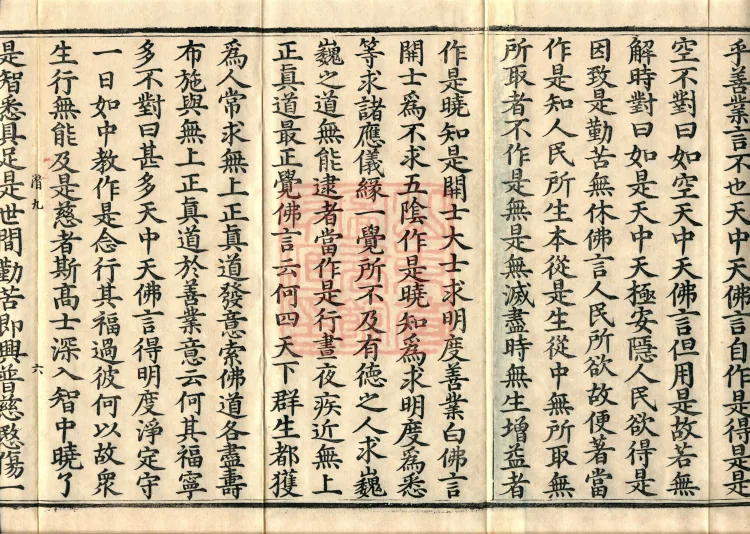 乎善業言不也天中天佛言自作是得是是
空不對曰如空天中天佛言但用是故若無
解時對曰如是天中天極安隱人民欲得是
因致是勤苦無休佛言人民所欲故便著當
作是知人民所生本從是生從中無所取無
所取者不作是無是無滅盡時無生增益者
作是曉知是開士大士求明度善業白佛言
開士爲不求五陰作是曉知爲求明度爲悉
等求諸應儀緣一覺所不及有德之人求巍
巍之道無能逮者當作是行晝夜疾近無上
正眞道最正覺佛言云何四天下群生都獲
爲人常求無上正眞道發意索佛道各盡壽
布施與無上正眞道於善業意云何其福寧
多不對曰甚多天中天佛言得明度淨定守
一日如中教作是念行其福過彼何以故衆
生行無能及是慈者斯高士深入智中曉了
潛九 六
是智悉具足是世間勤苦即興普慈愍傷一